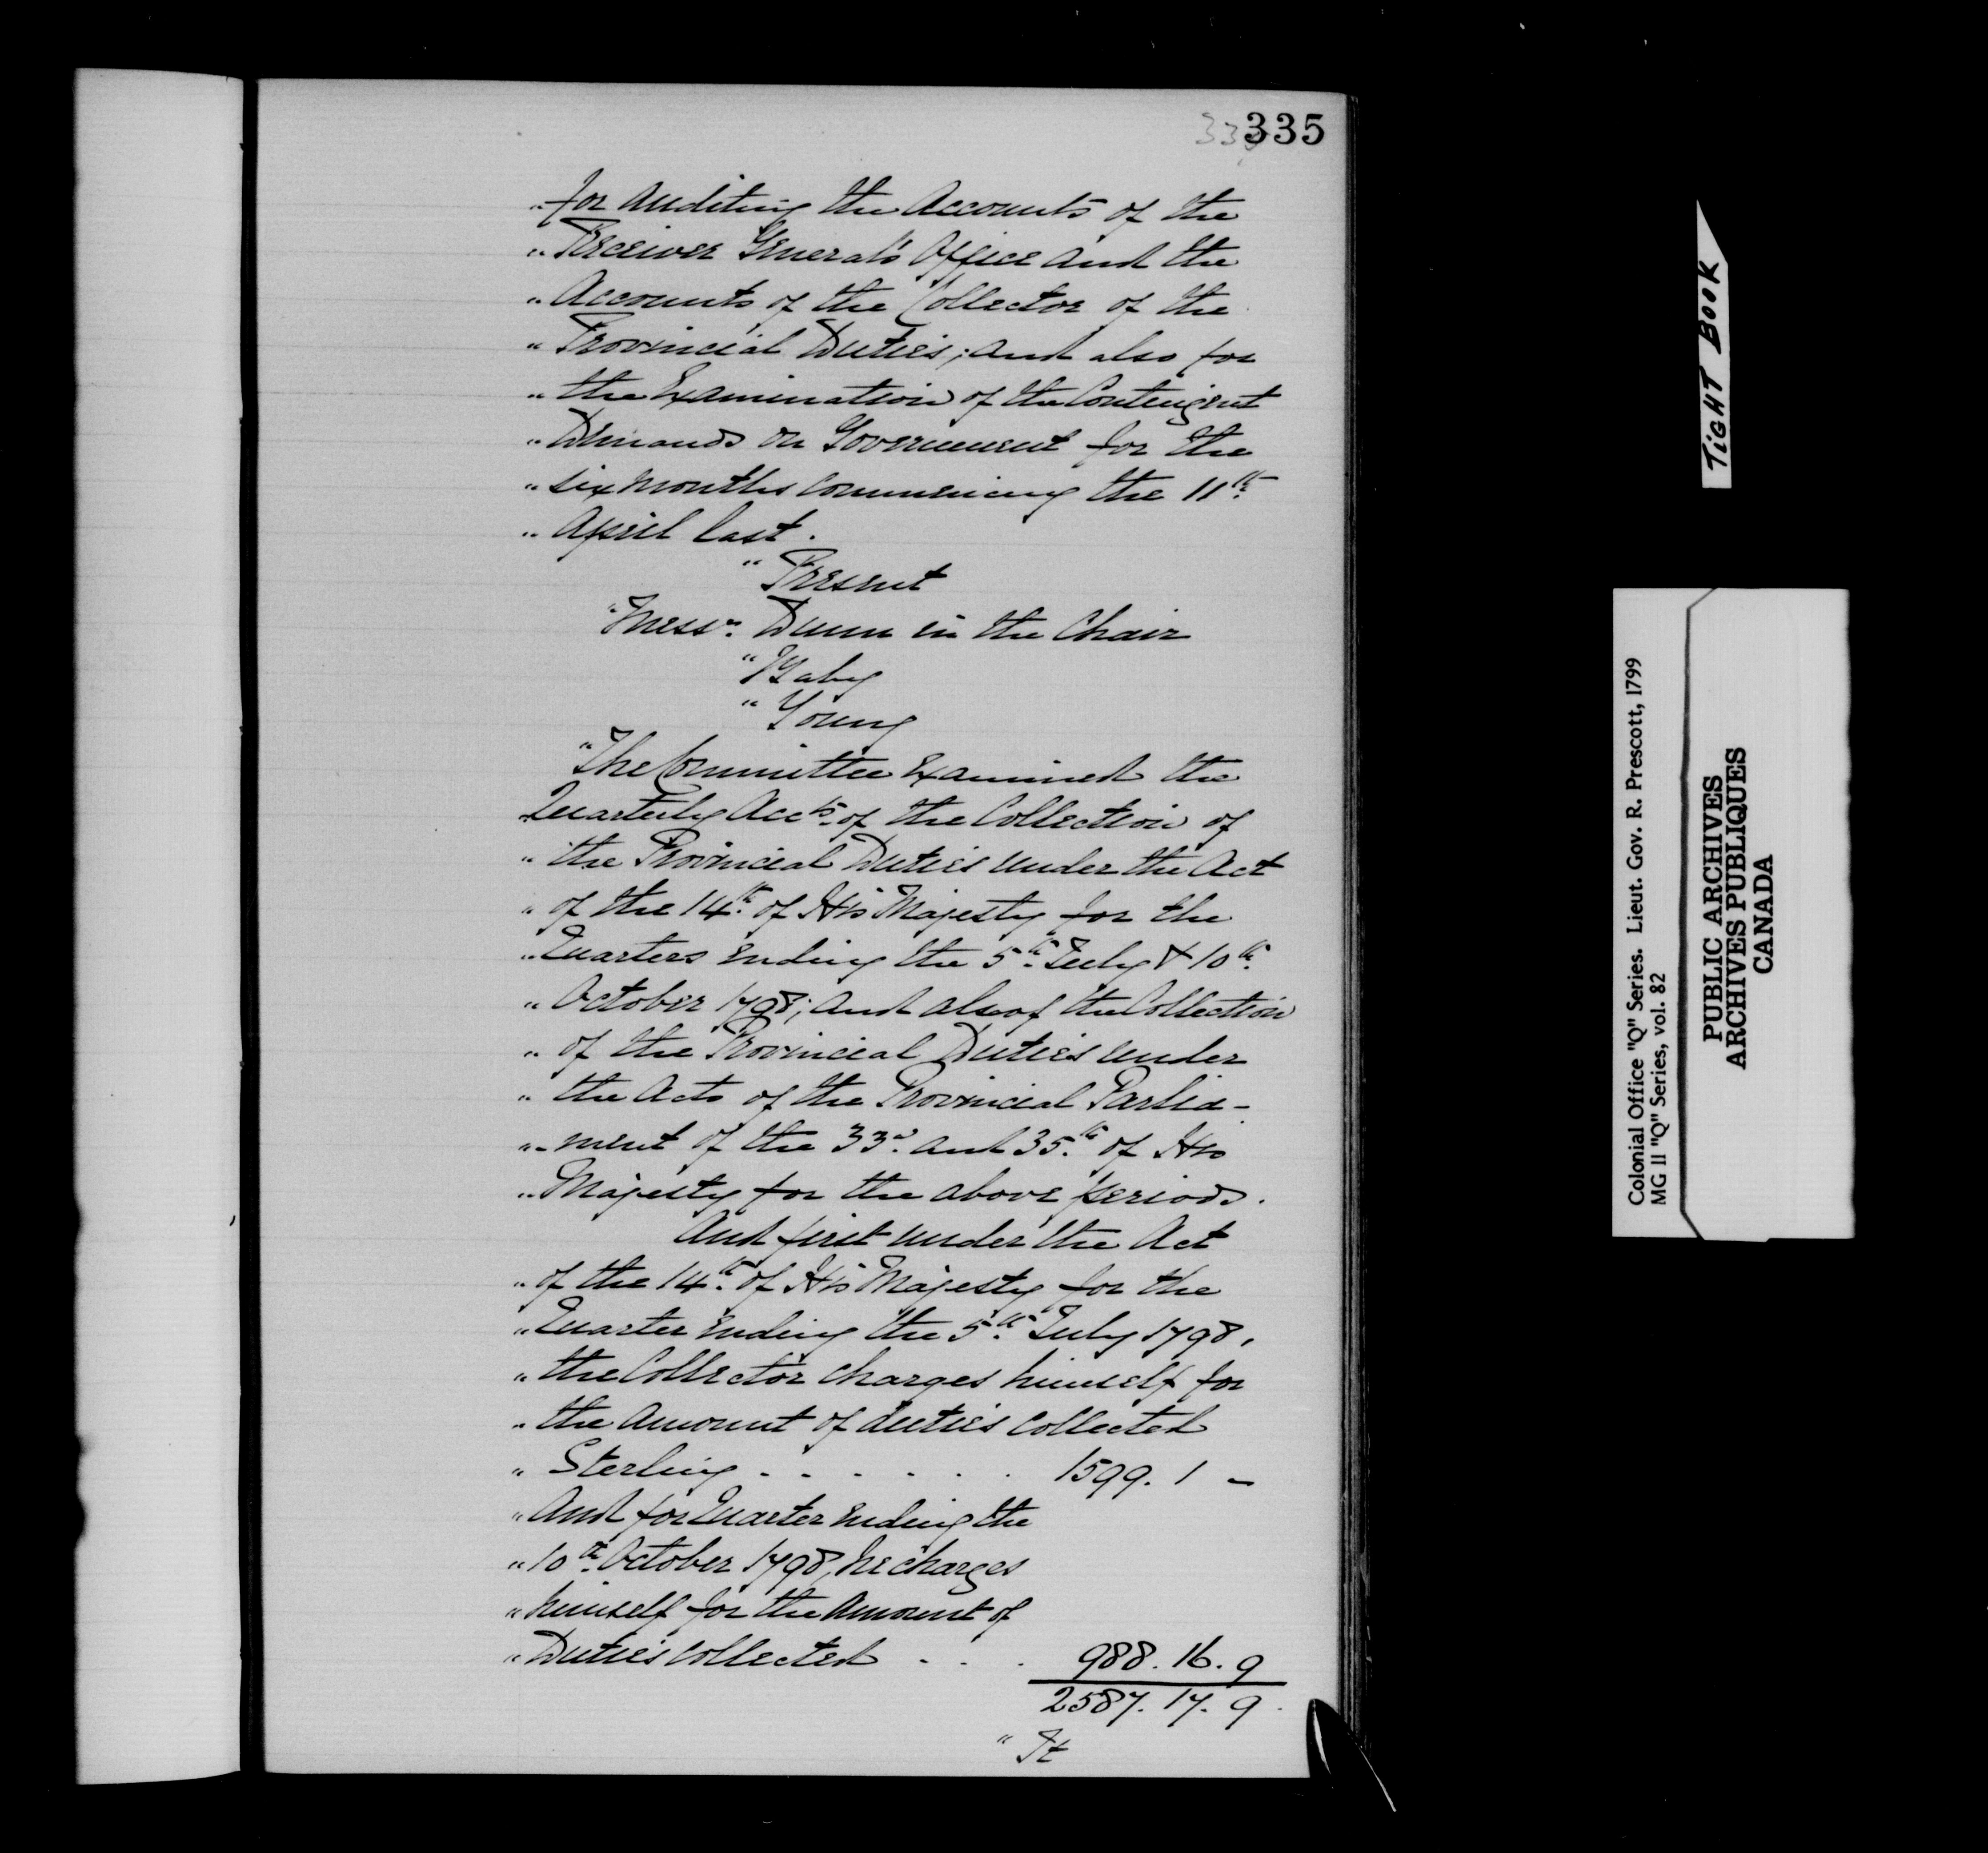 335
" for auditing the Accounts of the
" Receiver General's Office and the
" Accounts of the Collector of the
" Provincial Duties; and also for
" the Examination of the Contingent
" Demands on Government for the
" six months commencing the 11th
" April last.
" Present
" Messrs. Dunn in the Chair
" Baby
" Young
" The Committee Examined the
Quarterly Accts. of the Collection of
" the Provincial Duties under the Act
" of the 14th. of His Majesty for the
" Quarters Ending the 5th. July & 10th.
" October 1798; and also of the Collection
" of the Provincial Duties under
" the Acts of the Provincial Parlia-
" -ment of the 33d. and 35th. of His
" Majesty for the above periods.
And first under the Act
" of the 14th. of His Majesty for the
" Quarter Ending the 5th. July 1798,
" the Collector charges himself for
" the amount of duties collected
" Sterling . . . . . . 1599. 1 -
" And for Quarter Ending the
" 10th. October 1798, he charges
" himself for the Amount of
" Duties collected . . . 988. 16. 9
2587. 17. 9.
" It
TIGHT BOOK
Colonial Office "Q" Series. Lieut. Gov. R. Prescott, 1799
MG 11 "Q" Series, vol. 82
PUBLIC ARCHIVES
ARCHIVES PUBLIQUES
CANADA